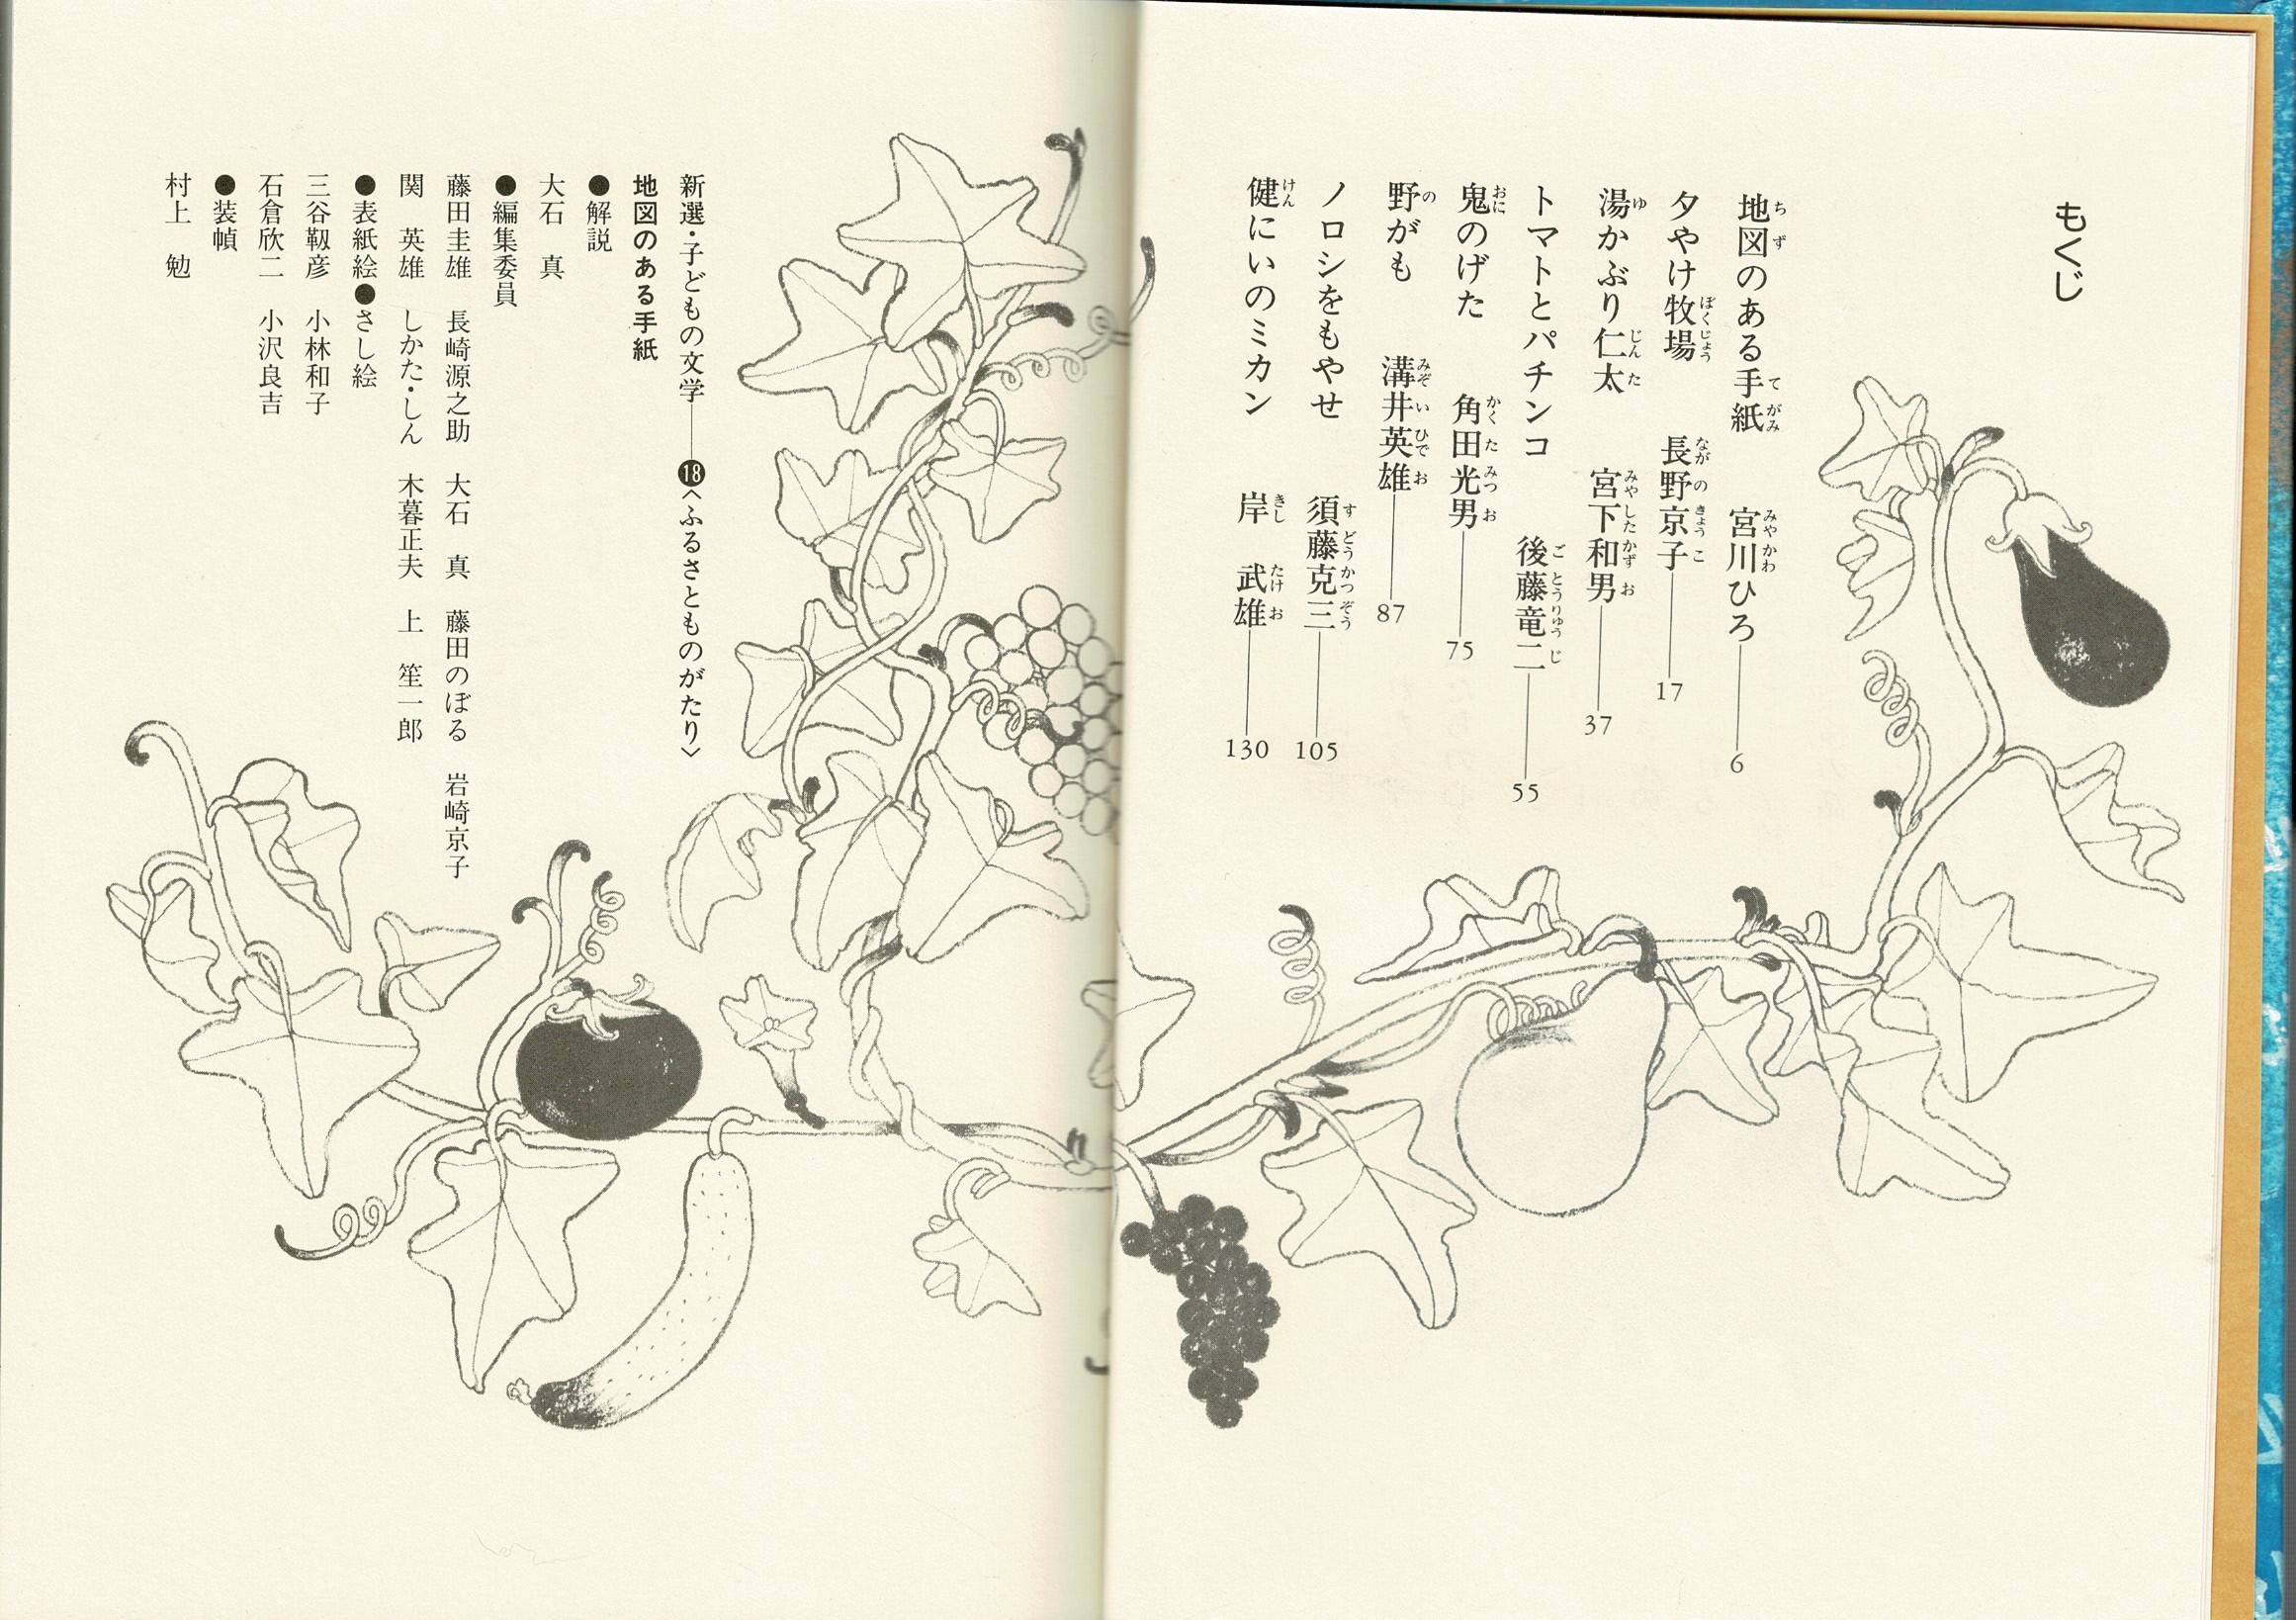 もくじ
地図のある手紙 宮川ひろ――6
夕やけ牧場 長野京子――17
湯かぶり仁太 宮下和男――37
トマトとパチンコ 後藤竜二――55
鬼のげた 角田光男――75
野がも 溝井英雄――87
ノロシをもやせ 須藤克三――105
健にいのミカン 岸 武雄――130
新選・子どもの文学――⓲〈ふるさとものがたり〉
地図のある手紙
●解説
大石 真
●編集委員
藤田圭雄 長崎源之助 大石 真 藤田のぼる 岩崎京子
関 英雄 しかた・しん 木暮正夫 上 笙一郎
●表紙絵●さし絵
三谷靱彦 小林和子
石倉欣二 小沢良吉
●装幀
村上 勉